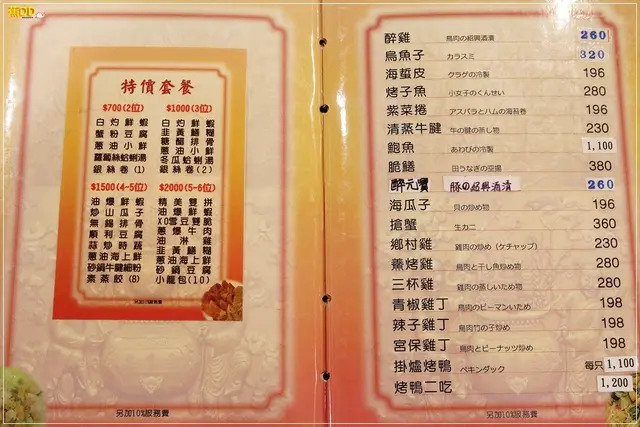 特價套餐
$700(2位)
白灼鮮蝦
蟹粉豆腐
蔥油小鮮
蘿蔔絲蛤蜊湯
銀絲卷(1)
$1000(3位)
白灼鮮蝦
韭黃鱔糊
糖醋排骨
蔥油小鮮
冬瓜蛤蜊湯
銀絲卷(2)
$1500(4-5位)
油爆鮮蝦
炒山瓜子
無錫排骨
順利豆腐
蒜炒時蔬
蔥油海上鮮
砂鍋牛腱細粉
素蒸餃(8)
$2000(5-6位)
精美雙拼
油爆鮮蝦
XO雪豆雙脆
蔥爆牛肉
油淋雞
韭黃鱔糊
蔥油海上鮮
砂鍋豆腐
小籠包(10)
另加10%服務費
另加10%服務費
醉雞 鳥肉の紹興酒漬 260
烏魚子 カラスミ 320
海蜇皮 クラゲの冷製 196
烤子魚 小女子のくんせい 280
紫菜捲 アスパラとハムの海苔卷 196
清蒸牛腱 牛の腱の蒸し物 230
鮑魚 あわびの冷製 1,100
脆鱔 田うなぎの空揚 380
醉元寶 豚の紹興酒漬 260
海瓜子 貝の炒め物 196
搶蟹 生カニ 360
鄉村雞 雞肉の炒め(ケチャップ) 230
蔫烤雞 鳥肉と干し魚炒め物 280
三杯雞 雞肉の蒸しいため物 280
青椒雞丁 鳥肉のピーマンいため 198
辣子雞丁 鳥肉竹の子炒め 198
宮保雞丁 鳥肉とピーナッツ炒め 198
掛爐烤鴨 ペキンダック 每只 1,100
烤鴨二吃 1,200
另加10%服務費